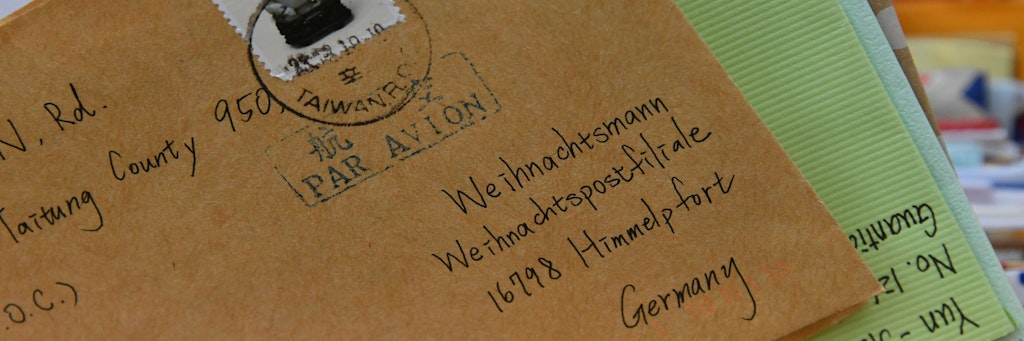 N, Rd.
Taitung County 950
O.C.)
TAIWAN R.
航空
PAR AVION
Weihnachtsmann
Weihnachtspostfiliale
16798 Himmelpfort
Germany
No. 12
Yun -